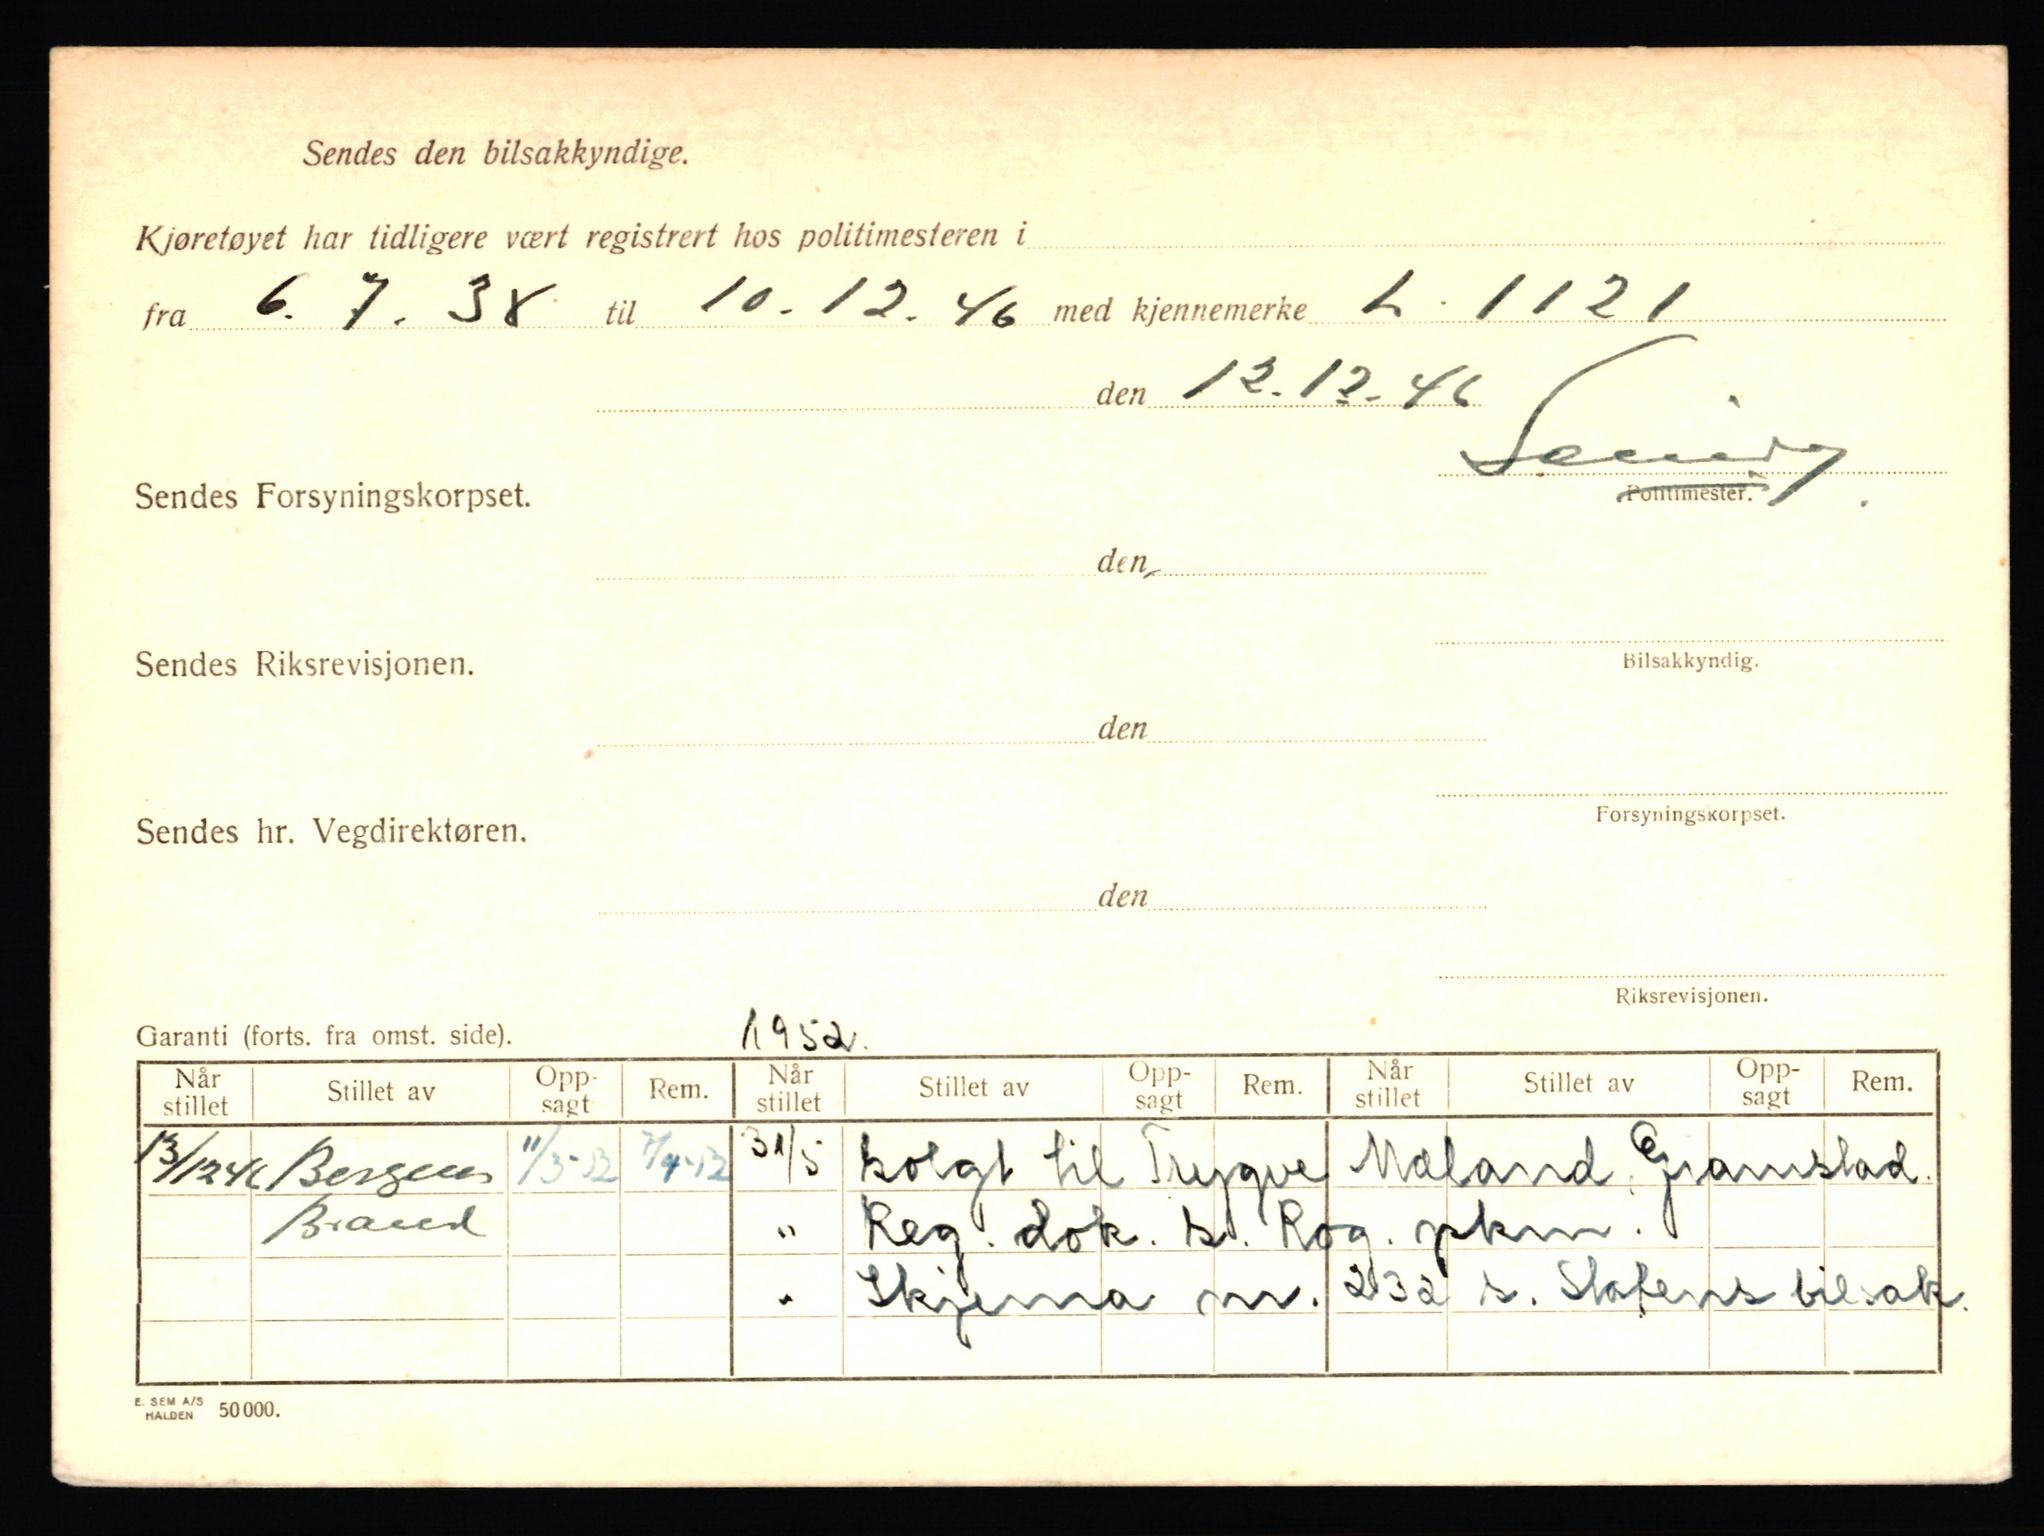 Sendes den bilsakkyndige.
Kjøretøyet har tidligere vært registrert hos politimesteren i
fra 6. 7. 38 til 10.-12.-46 med kjennemerke L. 1121
den 12.-12.-46
Sendes Forsyningskorpset.
Politimester.
den
Sendes Riksrevisjonen.
Bilsakkyndig.
den
Forsyningskorpset.
Sendes hr. Vegdirektøren.
den
Riksrevisjonen.
Garanti (forts. fra omst. side). 1952.
Når stillet Stillet av Opp-sagt Rem. Når stillet Stillet av Opp-sagt Rem. Når stillet Stillet av Opp-sagt Rem.
13/12 46 Bergens 11/3-52 7/4-52 31/5 solgt til Trygve Mæland, Gramstad.
Brand " Reg. dok. s. Rog. pkm.
" Skjema nr. 232 s. Statens bilsak.
E. SEM A/S
HALDEN 50 000.